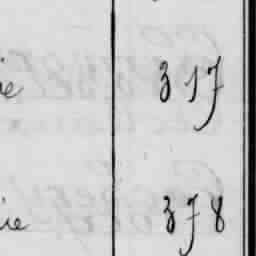 ie 317
ie 378